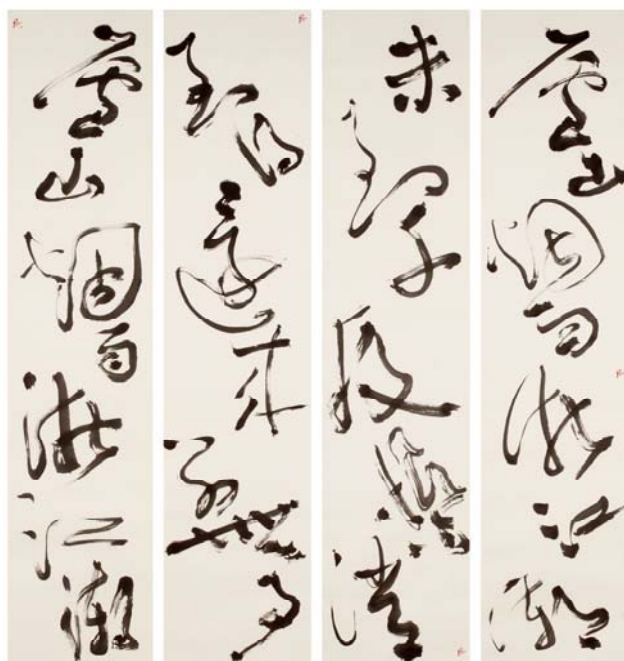 廬山烟雨浙江潮
未到千般恨不消
到得還來別無事
廬山烟雨浙江潮